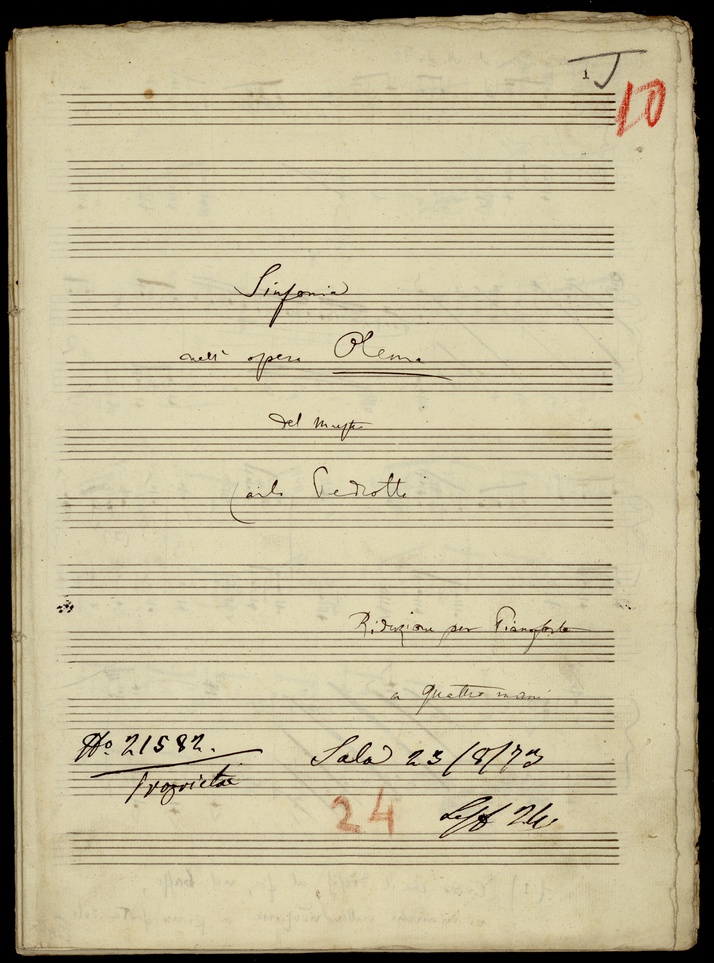 1 J
10
Sinfonia
nell' opera Olema
del Maestro
Carlo Pedrotti
Riduzione per Pianoforte
a quattro mani
No. 21582.
Proprietà
Sala 23/8/73
24
24